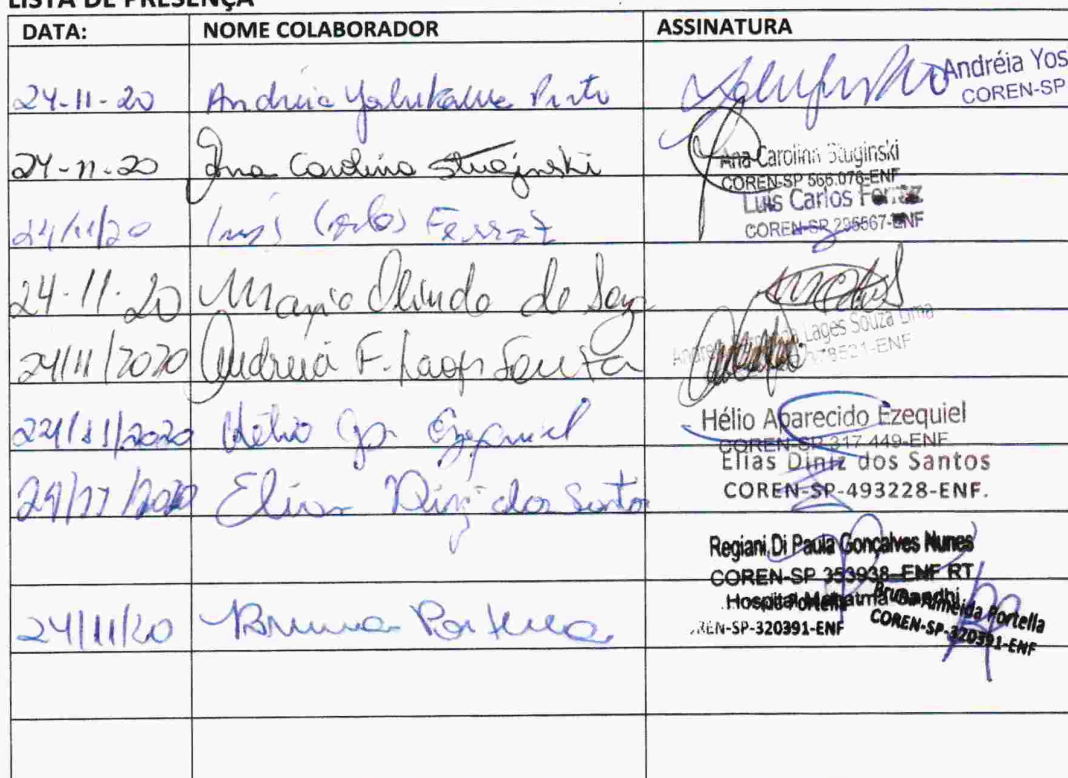 LISTA DE PRESENÇA
DATA: NOME COLABORADOR ASSINATURA
24-11-20 Andréia Pinto
Andréia Yos
COREN-SP
24-11-20 Ana Carolina Stuginski
Ana Carolina Stuginski
COREN-SP 566.076-ENF
24/11/20 Luis Carlos Ferraz
Luis Carlos Ferraz
COREN-SP 295567-ENF
24-11-20 Mario Olindo de
24/11/2020 Andreia F. Lages Souza
Lages Souza Lima
78521-ENF
24/11/2020 Hélio Ap Ezequiel
Hélio Aparecido Ezequiel
COREN-SP 317.449-ENF
24/11/2020 Elias Diniz dos Santos
Elias Diniz dos Santos
COREN-SP-493228-ENF.
Regiani Di Paula Gonçalves Nunes
COREN-SP 353938-ENF RT
Hospital Mahatma Gandhi
24/11/20 Bruna Portella
Portella
.REN-SP-320391-ENF
Bruna Almeida Portella
COREN-SP-320391-ENF